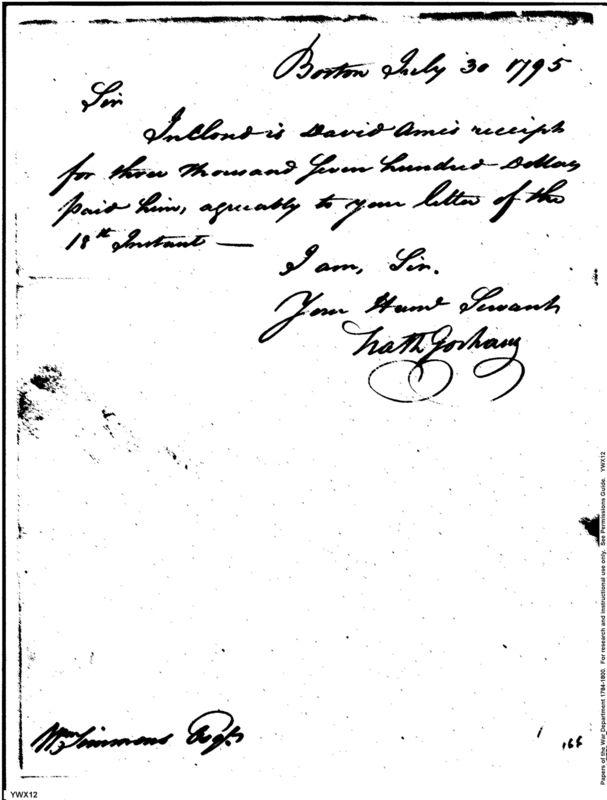 Boston July 30 1795
Sir
Inclosd is David Ames receipt
for three thousand Seven hundred Dollars
paid him, agreeably to your letter of the
18th Instant —
I am, Sir.
Your Hume Servant
Nath Gorham
Wm Simmons Esqr.
166
YWX12
Papers of the War Department 1784-1800. For research and instructional use only. See Permissions Guide. YWX12